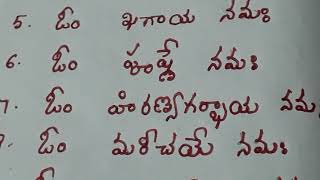 5. ఓం ఖగాయ నమః
6. ఓం పూష్ణే నమః
7. ఓం హిరణ్యగర్భాయ నమ
. ఓం మరీచయే నమః